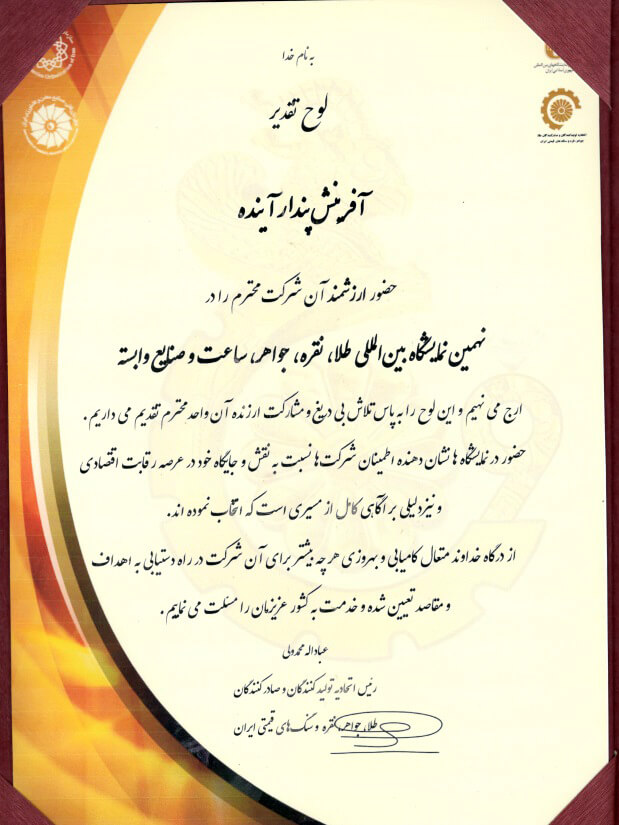 به نام خدا
لوح تقدیر
آفرینش پندار آینده
حضور ارزشمند آن شرکت محترم را در
نهمین نمایشگاه بین‌المللی طلا، نقره، جواهر، ساعت و صنایع وابسته
ارج می نهیم و این لوح را به پاس تلاش بی دریغ و مشارکت ارزنده آن واحد محترم تقدیم می داریم.
حضور در نمایشگاه ها نشان دهنده اطمینان شرکت ها نسبت به نقش و جایگاه خود در عرصه رقابت اقتصادی
و نیز دلیلی بر آگاهی کامل از مسیری است که انتخاب نموده اند.
از درگاه خداوند متعال کامیابی و بهروزی هر چه بیشتر برای آن شرکت در راه دستیابی به اهداف
و مقاصد تعیین شده و خدمت به کشور عزیزمان را مسئلت می نماییم.
عباداله محمدولی
رئیس اتحادیه تولید کنندگان و صادر کنندگان
طلا، جواهر، نقره و سنگ های قیمتی ایران